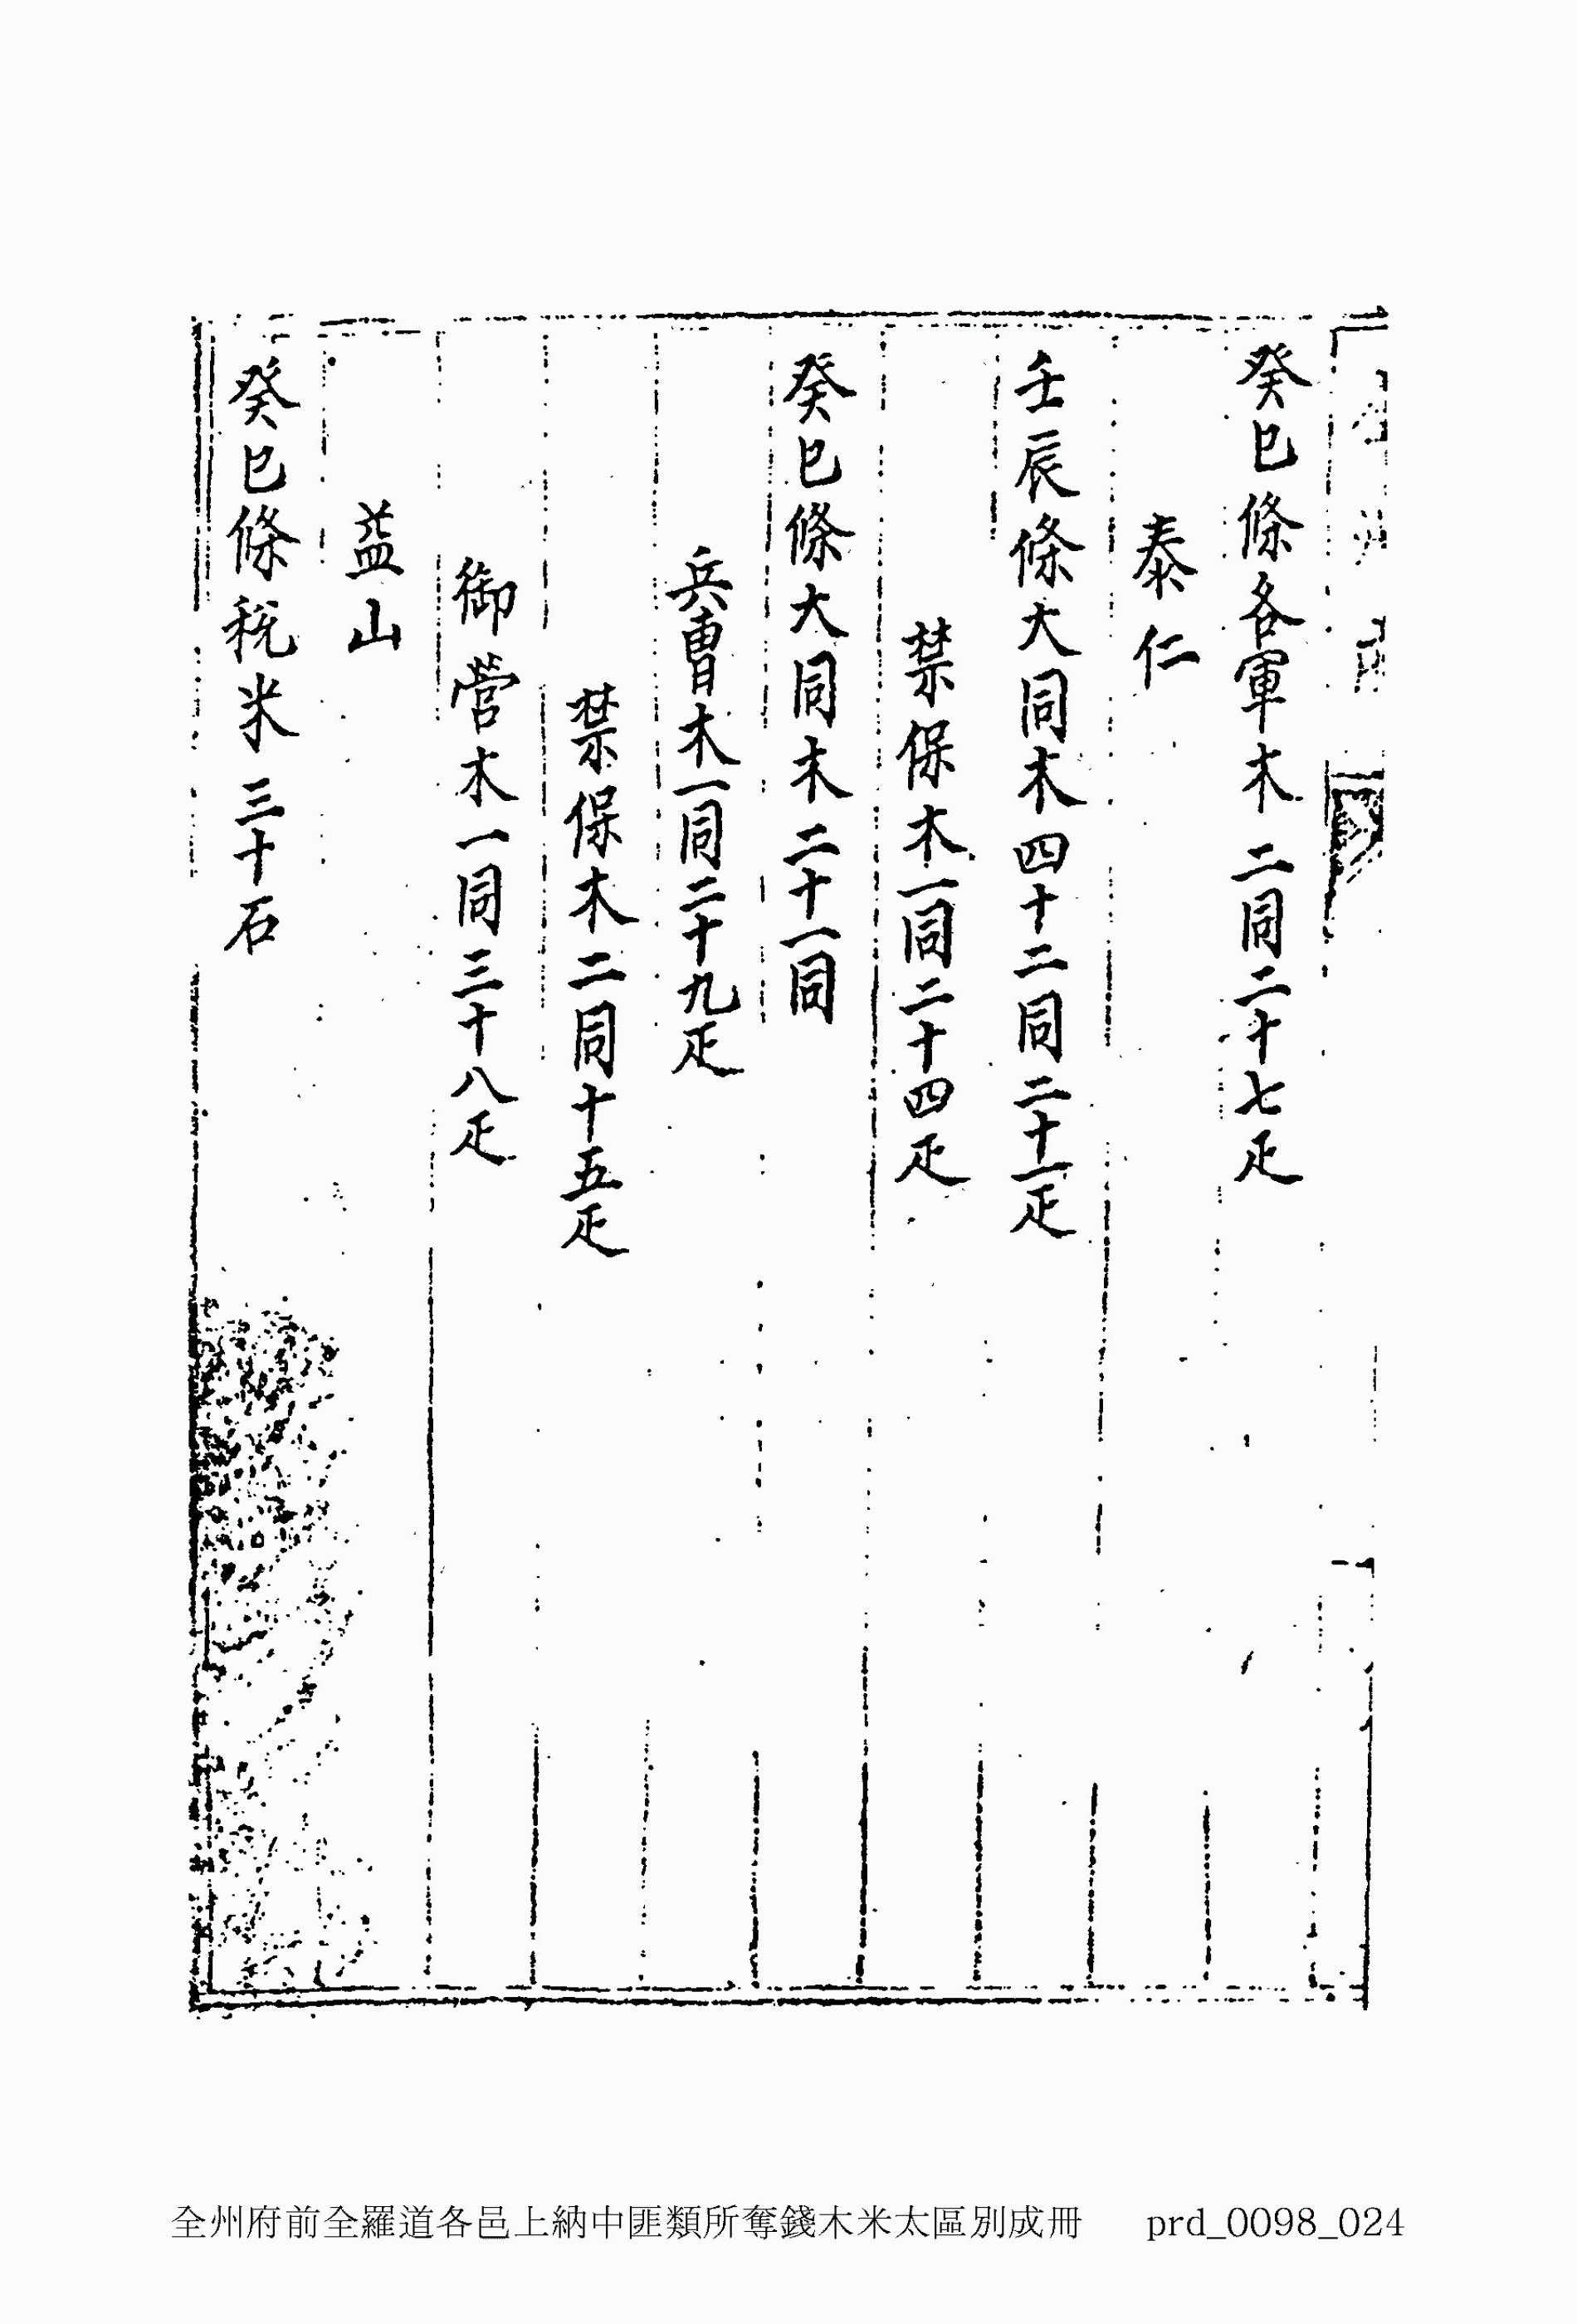 癸巳條各軍木二同二十七疋
泰仁
壬辰條大同木四十二同二十一疋
禁保木一同二十四疋
癸巳條大同木二十一同
兵曺木一同二十九疋
禁保木二同十五疋
御營木一同三十八疋
益山
癸巳條稅米三十石
全州府前全羅道各邑上納中匪類所奪錢木米太區別成冊 prd_0098_024